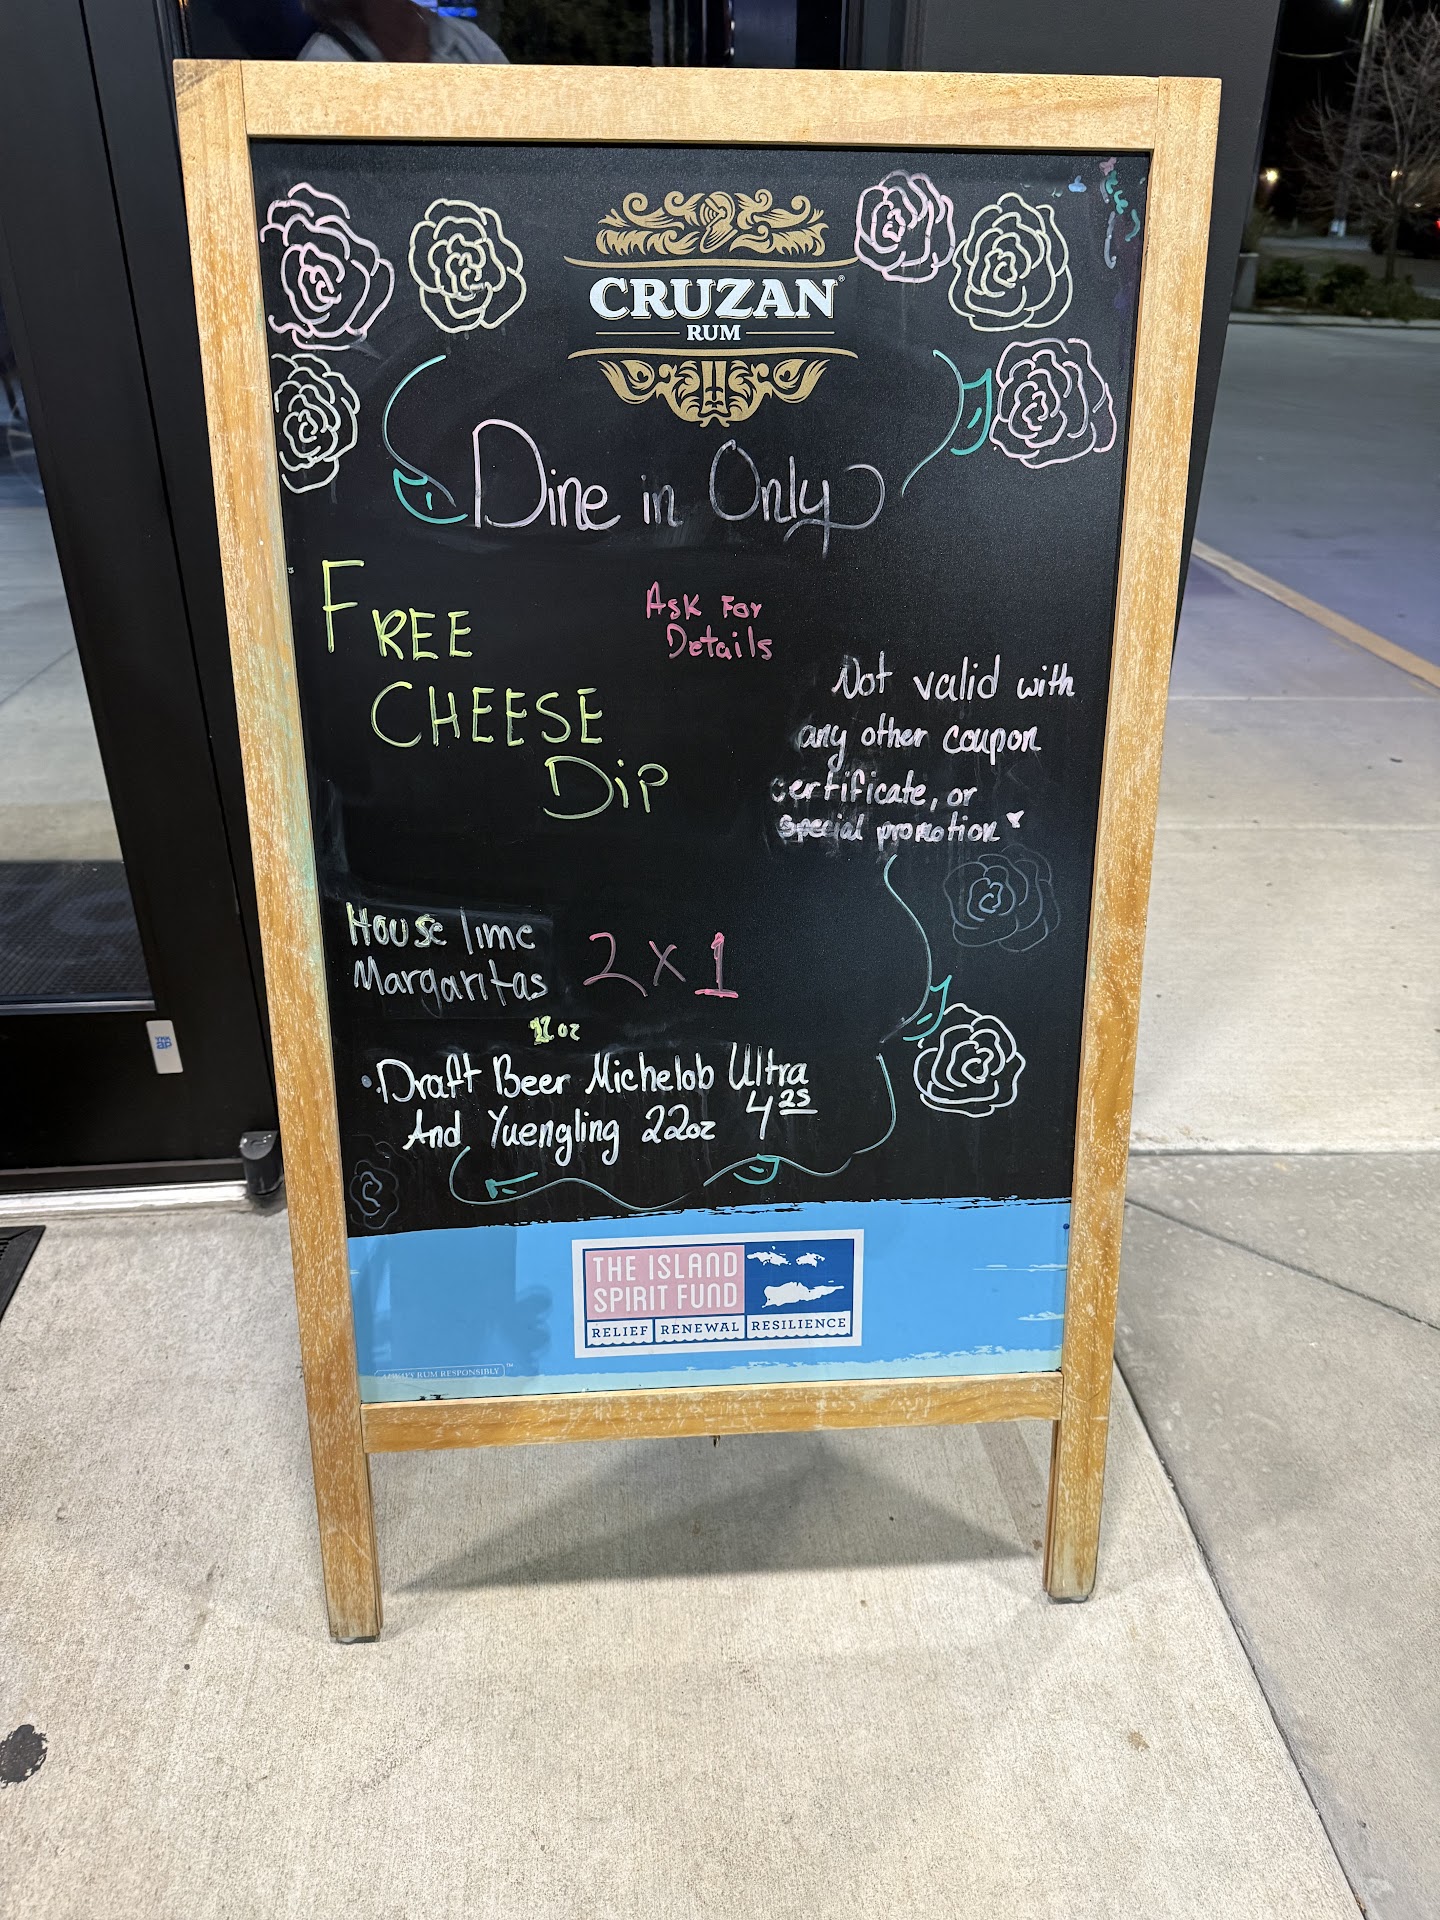 CRUZAN®
RUM
Dine in Only
FREE
CHEESE
Dip
Ask For
Details
Not valid with
any other coupon
certificate, or
special promotion*
House lime
Margaritas
2x1
12 oz
• Draft Beer Michelob Ultra
And Yuengling 22oz 4 25
THE ISLAND
SPIRIT FUND
RELIEF RENEWAL RESILIENCE
ALWAYS RUM RESPONSIBLY™
YKK
ap